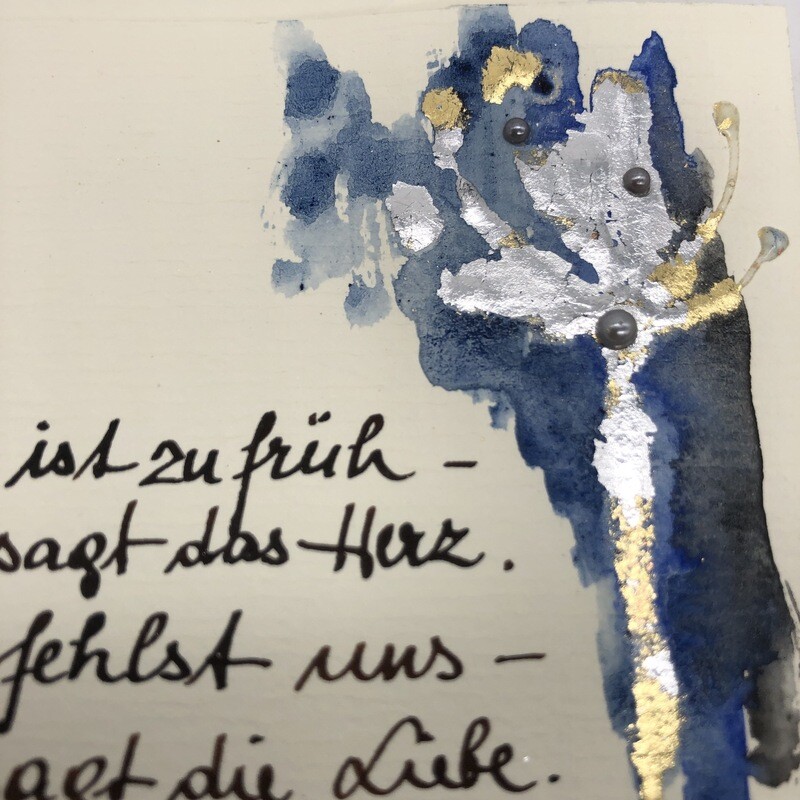 ist zu früh -
sagt das Herz.
fehlst uns -
agt die Liebe.